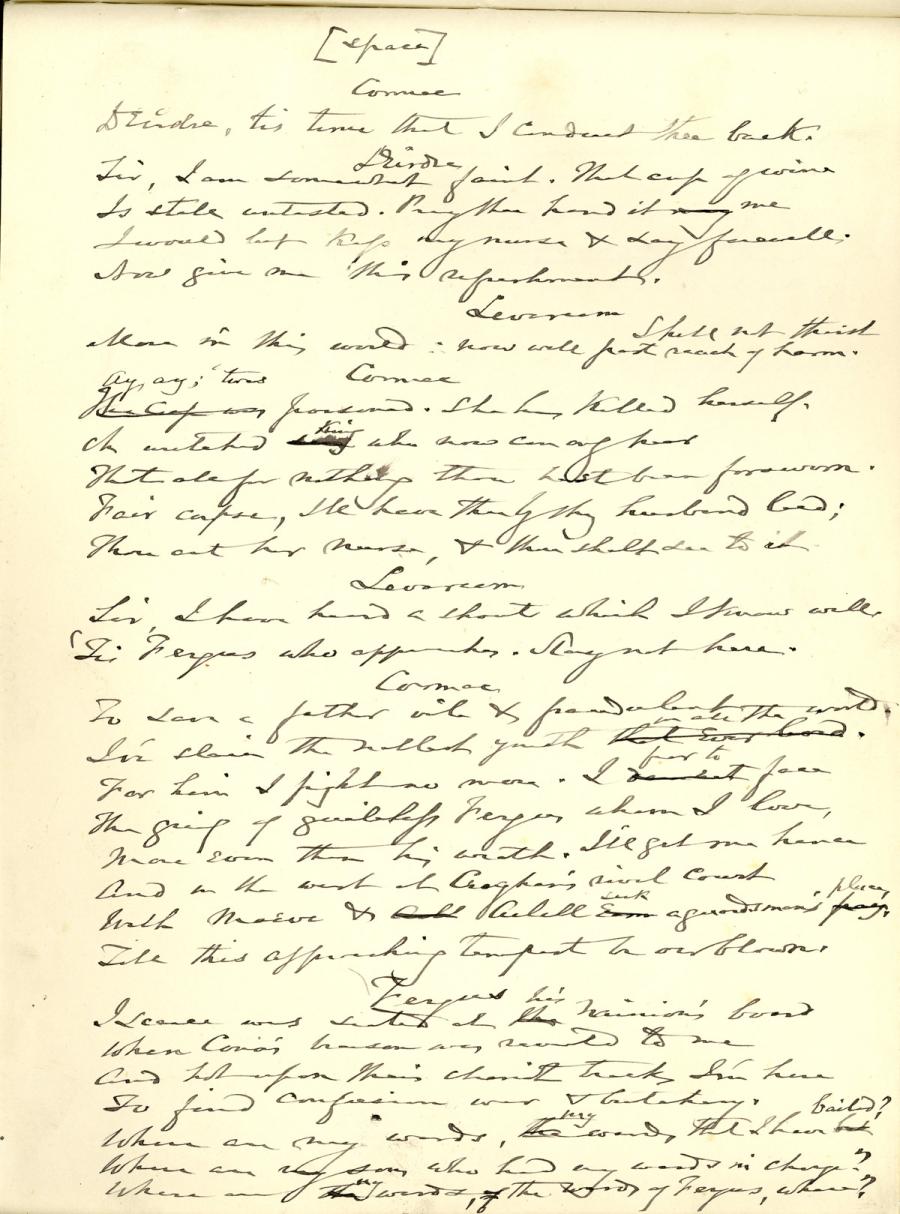 [space]
Cormac
Deirdre, tis time that I conduct thee back.
Deirdre
Sir, I am somewhat faint. That cup of wine
Is stale untasted. Pray thee hand it me
I would but kiss my nurse & say farewell.
Now give me this refreshment.
Levarcam
Shalt not thirst
More in this world : now well past reach of harm.
Cormac
Ay, ay; 'twas
The Cup was poisoned. She has killed herself.
Oh wretched king who now can ang hear
That all for nothing thou hast been forsworn.
Fair corpse, I'll have thee by thy husband laid;
Thou art her nurse, & thou shalt see to it
Levarcam
Sir, I have heard a shout which I know well.
'Tis Fergus who approaches. Stay not here.
Cormac
To save a father vile & fraudulent
in all the world.
I've slain the noblest youth that ever lived.
fear to
For him I fight no more. I face
The grief of guileless Fergus whom I love,
More even than his wrath. I'll get me hence
And in the west at Croghan's rival court
seek place,
With Maeve & Ailell a swordsman's
Till this approaching tempest be overblown.
Fergus
his
I scarce was seated at the Minion's board
When Conor's treason was revealed to me
And hot upon their chariot track, I'm here
To find confusion war & butchery.
my bailed?
Where are my wards, the wards that I have
Where are my sons who had my wards in charge?
my
Where are the wards, of the wards of Fergus, where?